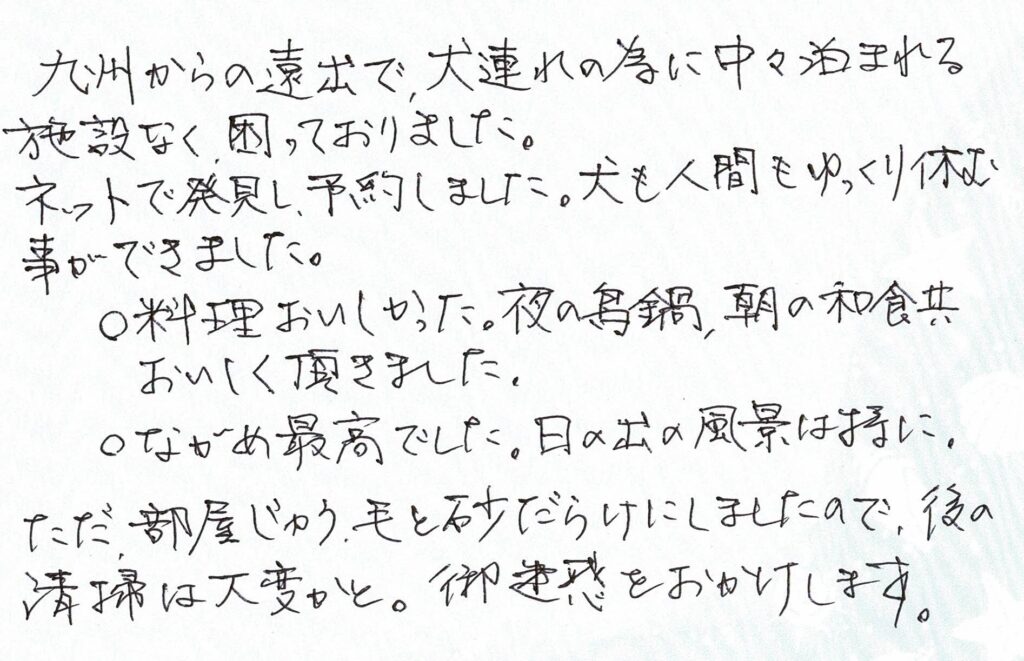 九州からの遠出で、犬連れの為に中々泊まれる
施設なく、困っておりました。
ネットで発見し、予約しました。犬も人間もゆっくり休む
事ができました。
○料理おいしかった。夜の鳥鍋、朝の和食共
おいしく頂きました。
○ながめ最高でした。日の出の風景は特に。
ただ、部屋じゅう、毛と砂だらけにしましたので、後の
清掃は大変かと。御迷惑をおかけします。